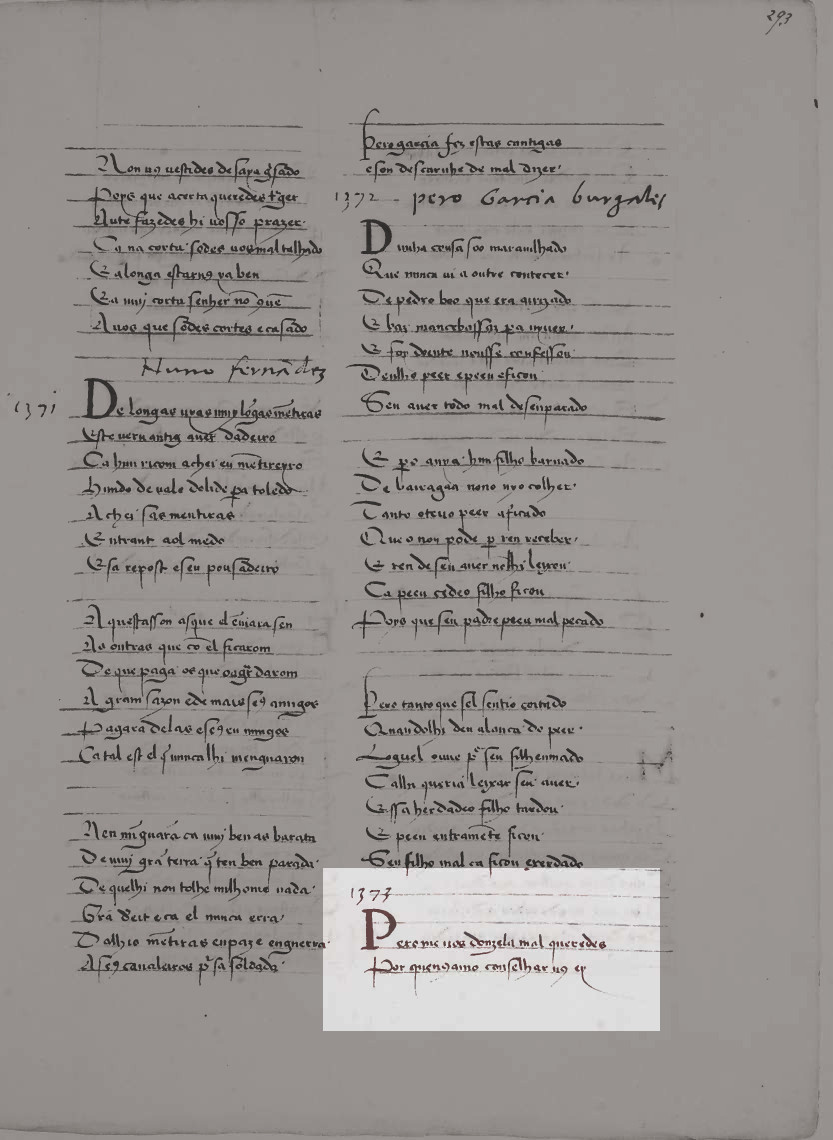 293
Non uꝯ uestides de saya g̃sado
Poys que acerta queredes trager
Aute fazedes hi uosso prazer
Ca na corta sodes uos mal talhado
E a longa estarꝯ ya ben
Ca muj corta senher nõ ꝯuẽ
A uos que sodes cortes e casado
Nuno fernãdez
1371
De longas uyas muy lõgas mẽtiras
Este
Ca hun ricom achei eu mẽtireyro
hindo de ualedolide pa toledo
Achei sas mentiras
Entrant a olmedo
E sa repost e seu pousadeiro
Aquestas son as que el ẽuiara sen
As outras que cõ el ficarom
De que paga os que
A gram sazon e de mais seꝯ amigos
Pagara delas e seꝯ eu migos
Ca tal est el q̃ nunca lhi menguaron
Nen mĩguarã ca muj ben as barata
De muj grã terra q̃ ten ben parada
De quelhi non tolhe nulhome nada
Grã dereit e ca el nunca erra
Dalhis mẽtiras en paz e en guerra
A seꝯ caualeiros pr̃ sa soldada
Pero garcia fez estas cantigas
e son descarnhe de mal dizer
1372 - pero Garcia burgales
Dunha cousa soo marauilhado
Que nunca ui a outre contecer
De pedro boo que era arizado
E bar mancebo ssaz pa uiuer
E foy doente nousse confessou
Deulho peer e peeu e ficou
Seu auer todo mal desenparado
E pero
De barragaã
Tanto
Que o non pode per ren receber
E ren de seu auer nõlhi leixou
Ca peeu cedeo filho ficou
Poys que seu padre peeu mal pecado
Pero tanto que sel sentio coitado
Quandolhi deu a lança do peer
Loguel ouue pr̃ seu filh enuiado
Calhi queria leixar seu auer
E ssa herdade o filho tardou
E peeu entramẽte ficou
Seu filho mal ca ficou exerdado
1373
Pero me uos donzela mal queredes
Por quen uꝯ amo conselhar uꝯ ey